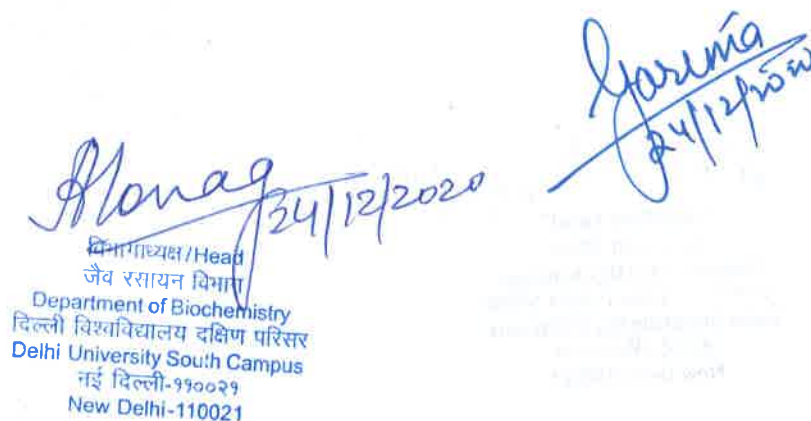 Garima
24/12/2020
24/12/2020
विभागाध्यक्ष/Head
जैव रसायन विभाग
Department of Biochemistry
दिल्ली विश्वविद्यालय दक्षिण परिसर
Delhi University South Campus
नई दिल्ली-११००२१
New Delhi-110021